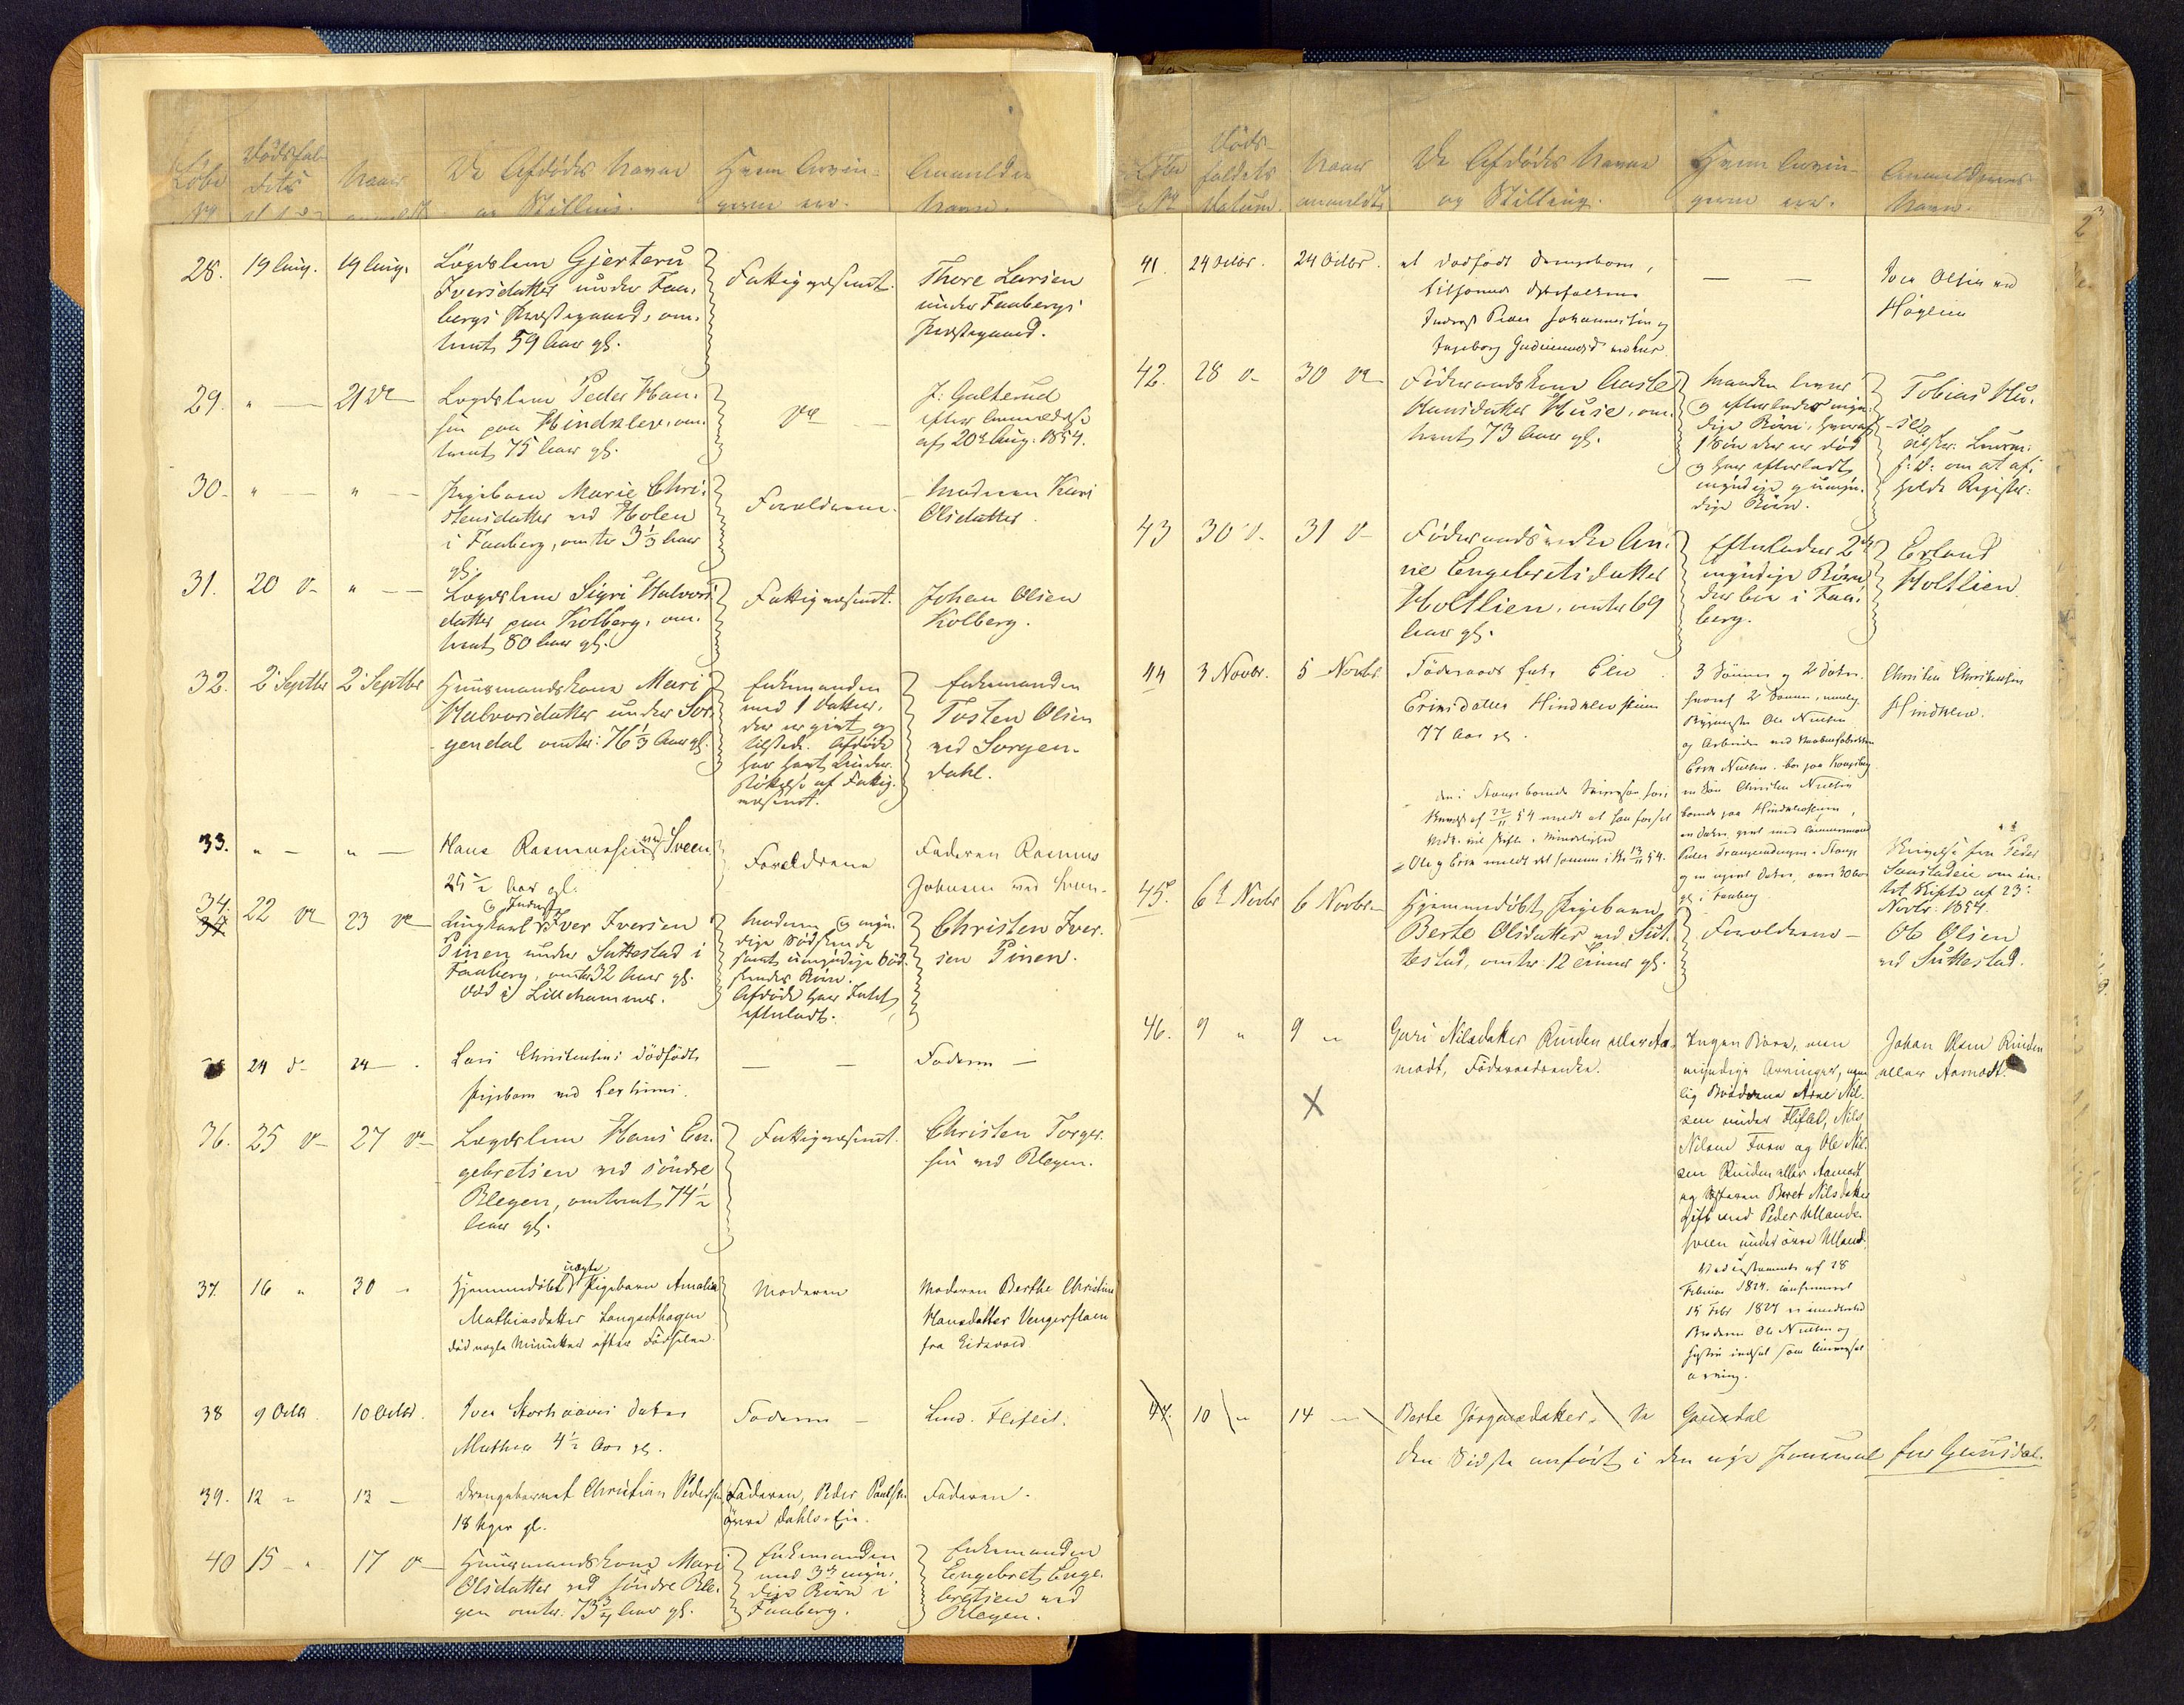 Løbe No
Dødsfaldets
Naar anmeldt
De Afdødes Navne og Stilling.
Hvem Arvingerne ere.
Anmelderens Navn.
28. 19 Aug. 19 Aug.
Lægdslem Gjerteru
Iversdatter under Faa-
bergs Præstegaard, om-
trent 59 Aar gl.
Fattigvæsenet.
Thore Larsen
under Faabergs
Præstegaard.
29. " — 21 de
Lægdslem Peder Han-
sen paa Hindklev, om-
trent 75 Aar gl.
do —
J. Galterud
efter Anmeldelse
af 20de Aug. 1854.
30. " — " —
Pigebarn Marie Chri-
stensdatter ved Holen
i Faaberg, omtr 3⅓ Aar
gl.
Forældrene.
Moderen Kari
Olsdatter.
31. 20 d — " —
Lægdslem Sigri Halvors-
datter paa Kolberg, om-
trent 80 Aar gl.
Fattigvæsenet.
Johan Olsen
Kolberg.
32. 2 Septbr 2 Septbr
Huusmandskone Mari
Halvorsdatter under Sor-
gendal omtr: 76⅓ Aar gl.
Enkemanden
med 1 Datter,
der er givt og
tilstede. Afdøde
har havt Under-
støttelse af Fattig-
væsenet.
Enkemanden
Tosten Olsen
ved Sorgen-
dahl.
33. " — " —
Hans Rasmussen ved Sveen
25½ Aar gl.
Forældrene
Faderen Rasmus
Johnsen ved Sveen.
34. 22 de 23 de
Ungkarl og Inderst Iver Iversen
Pinen under Suttestad i
Faaberg, omtr 32 Aar gl.
død i Lillehammer.
Moderen og myn-
dige Sødskende
samt umyndige Sød-
skendes Børn.
Afdøde har Intet
efterladt.
Christen Iver-
sen Pinen.
24 d — 24 —
Lars Christensens dødfødt
Pigebarn ved
— —
Faderen —
36. 25 d — 27 de
Lægdslem Hans En-
gebretsen ved søndre
Blegen, omtrent 74½
Aar gl.
Fattigvæsenet.
Christen Torger-
sen ved Blegen.
37. 16 " 30 "
Hjemmedøbt uægte Pigebarn Amalia
Mathiasdatter Langsethagen
død nogle Minutter efter Fødselen.
Moderen
Moderen Berthe Christine
Hansdatter Vengerstaen
fra Eidsvold
38 9 Octbr. 10 Octbr.
Iver Storhaaves datter
Mathea 4½ Aar gl.
Faderen —
Lend. Fliflet.
39. 12 " 13 —
Drengebarnet Christian Pedersen
18 Uger gl.
Faderen, Peder Paulsen
øvre Dahls-Eie.
Faderen.
40 15 " 17 d —
Huusmandskone Mari
Olsdatter ved søndre Ble-
gen omtr. 73¾ Aar gl.
Enkemanden
med 3de myn-
dige Børn i
Faaberg.
Enkemanden
Engebret Enge-
bretsen ved
Blegen.
Løbe No
Døds-
faldets
Datum.
Naar
anmeldt
De Afdødes Navne
og Stilling.
Hvem Arvin-
gerne ere.
Anmelderens
Navn.
41. 24 Octbr. 24 Octbr.
et dødfødt Drengebarn,
tilhørende Ægtefolkene
Inderst Peder Johannesen og
Ingeborg
— —
Iver Olsen ved
Høglien
42. 28 d — 30 de
Føderaadskone Aaste
Hansdatter Huse, om-
trent 73 Aar gl.
Manden lever
og efterlader myn-
dige Børn, hvoraf
1 Søn der er død
og har efterladt
myndige og umyn-
dige Børn.
Tobias Hu-
se
43 30 d — 31 d —
Føderaadsenke An-
ne Engebretsdatter
Holtlien, omtr 69
Aar gl.
Efterlader 2de
myndige Børn
der bor i Faa-
berg.
Erland
Holtlien.
44 3 Novbr. 5 Novbr.
Føderaads Enke Elen
Ericsdatter Hindklevsteen
77 Aar gl.
3 Sønner og 2 Døtre,
hvoraf 2 Sønner, nemlig
Ole Nielsen
og Arbeider ved Vaabenfabrikken
Erik Nielsen bor paa Kongsberg
en Søn Christen Nielsen
boende paa Hindklevsteen,
en Datter, givt med
Peder i Stange
og en ugivt Datter, over 30 Aar
gl. i Faaberg
Christen Christensen
Hindklev.
Ole og Erik meldt det samme i Br 13/11 54.
Novbr. 1854.
45. 6te Novbr 6 Novbr.
Hjemmedøbt Pigebarn
Berte Olsdatter ved Sut-
testad, omtr: 12 Timer gl.
Forældrene —
Ole Olsen
ved Suttestad.
46. 9 " 9 "
Guri Nilsdatter Rinden eller Aa-
modt, Føderaadsenke.
Ingen Børn, men
myndige Arvinger, nem-
lig Brødrene Arne Nil-
sen under Fliflet, Nils
Nilsen Furu og Ole Nil-
sen Rinden eller Aamodt
og Søsteren Beret Nilsdatter
gift med Peder Ullands-
sveen under øvre Ulland.
Ved Testament af 28
Februar 1824, confirmeret
15 Febr 1827 er imidlertid
Broderen Ole Nielsen og
Hustru indsat som Universal
arving.
Johan Olsen Rinden
eller Aamodt.
X
47. 10 " 14 —
Berte Jørgensdatter, — Gausdal
den Sidste anført i den nye Journal for Gausdal.
2